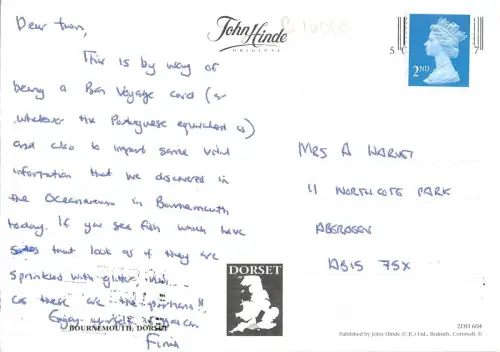 Dear
This is by way of
being a Bon Voyage card (or
whatever the Portuguese equivalent is)
and also to impart some vital
information that we discovered in
the Oceanarium in Bournemouth
today. If you see fish which have
that look as if they are
sprinkled with
as these are the
Enjoy
John Hinde
ORIGINAL
2ND
5
7
MRS A
11 NORTHCOTE PARK
ABERDEEN
AB15 7SX
DORSET
BOURNEMOUTH, DORSET
2DH 604
Published by John Hinde (U.K.) Ltd., Redruth, Cornwall. ©